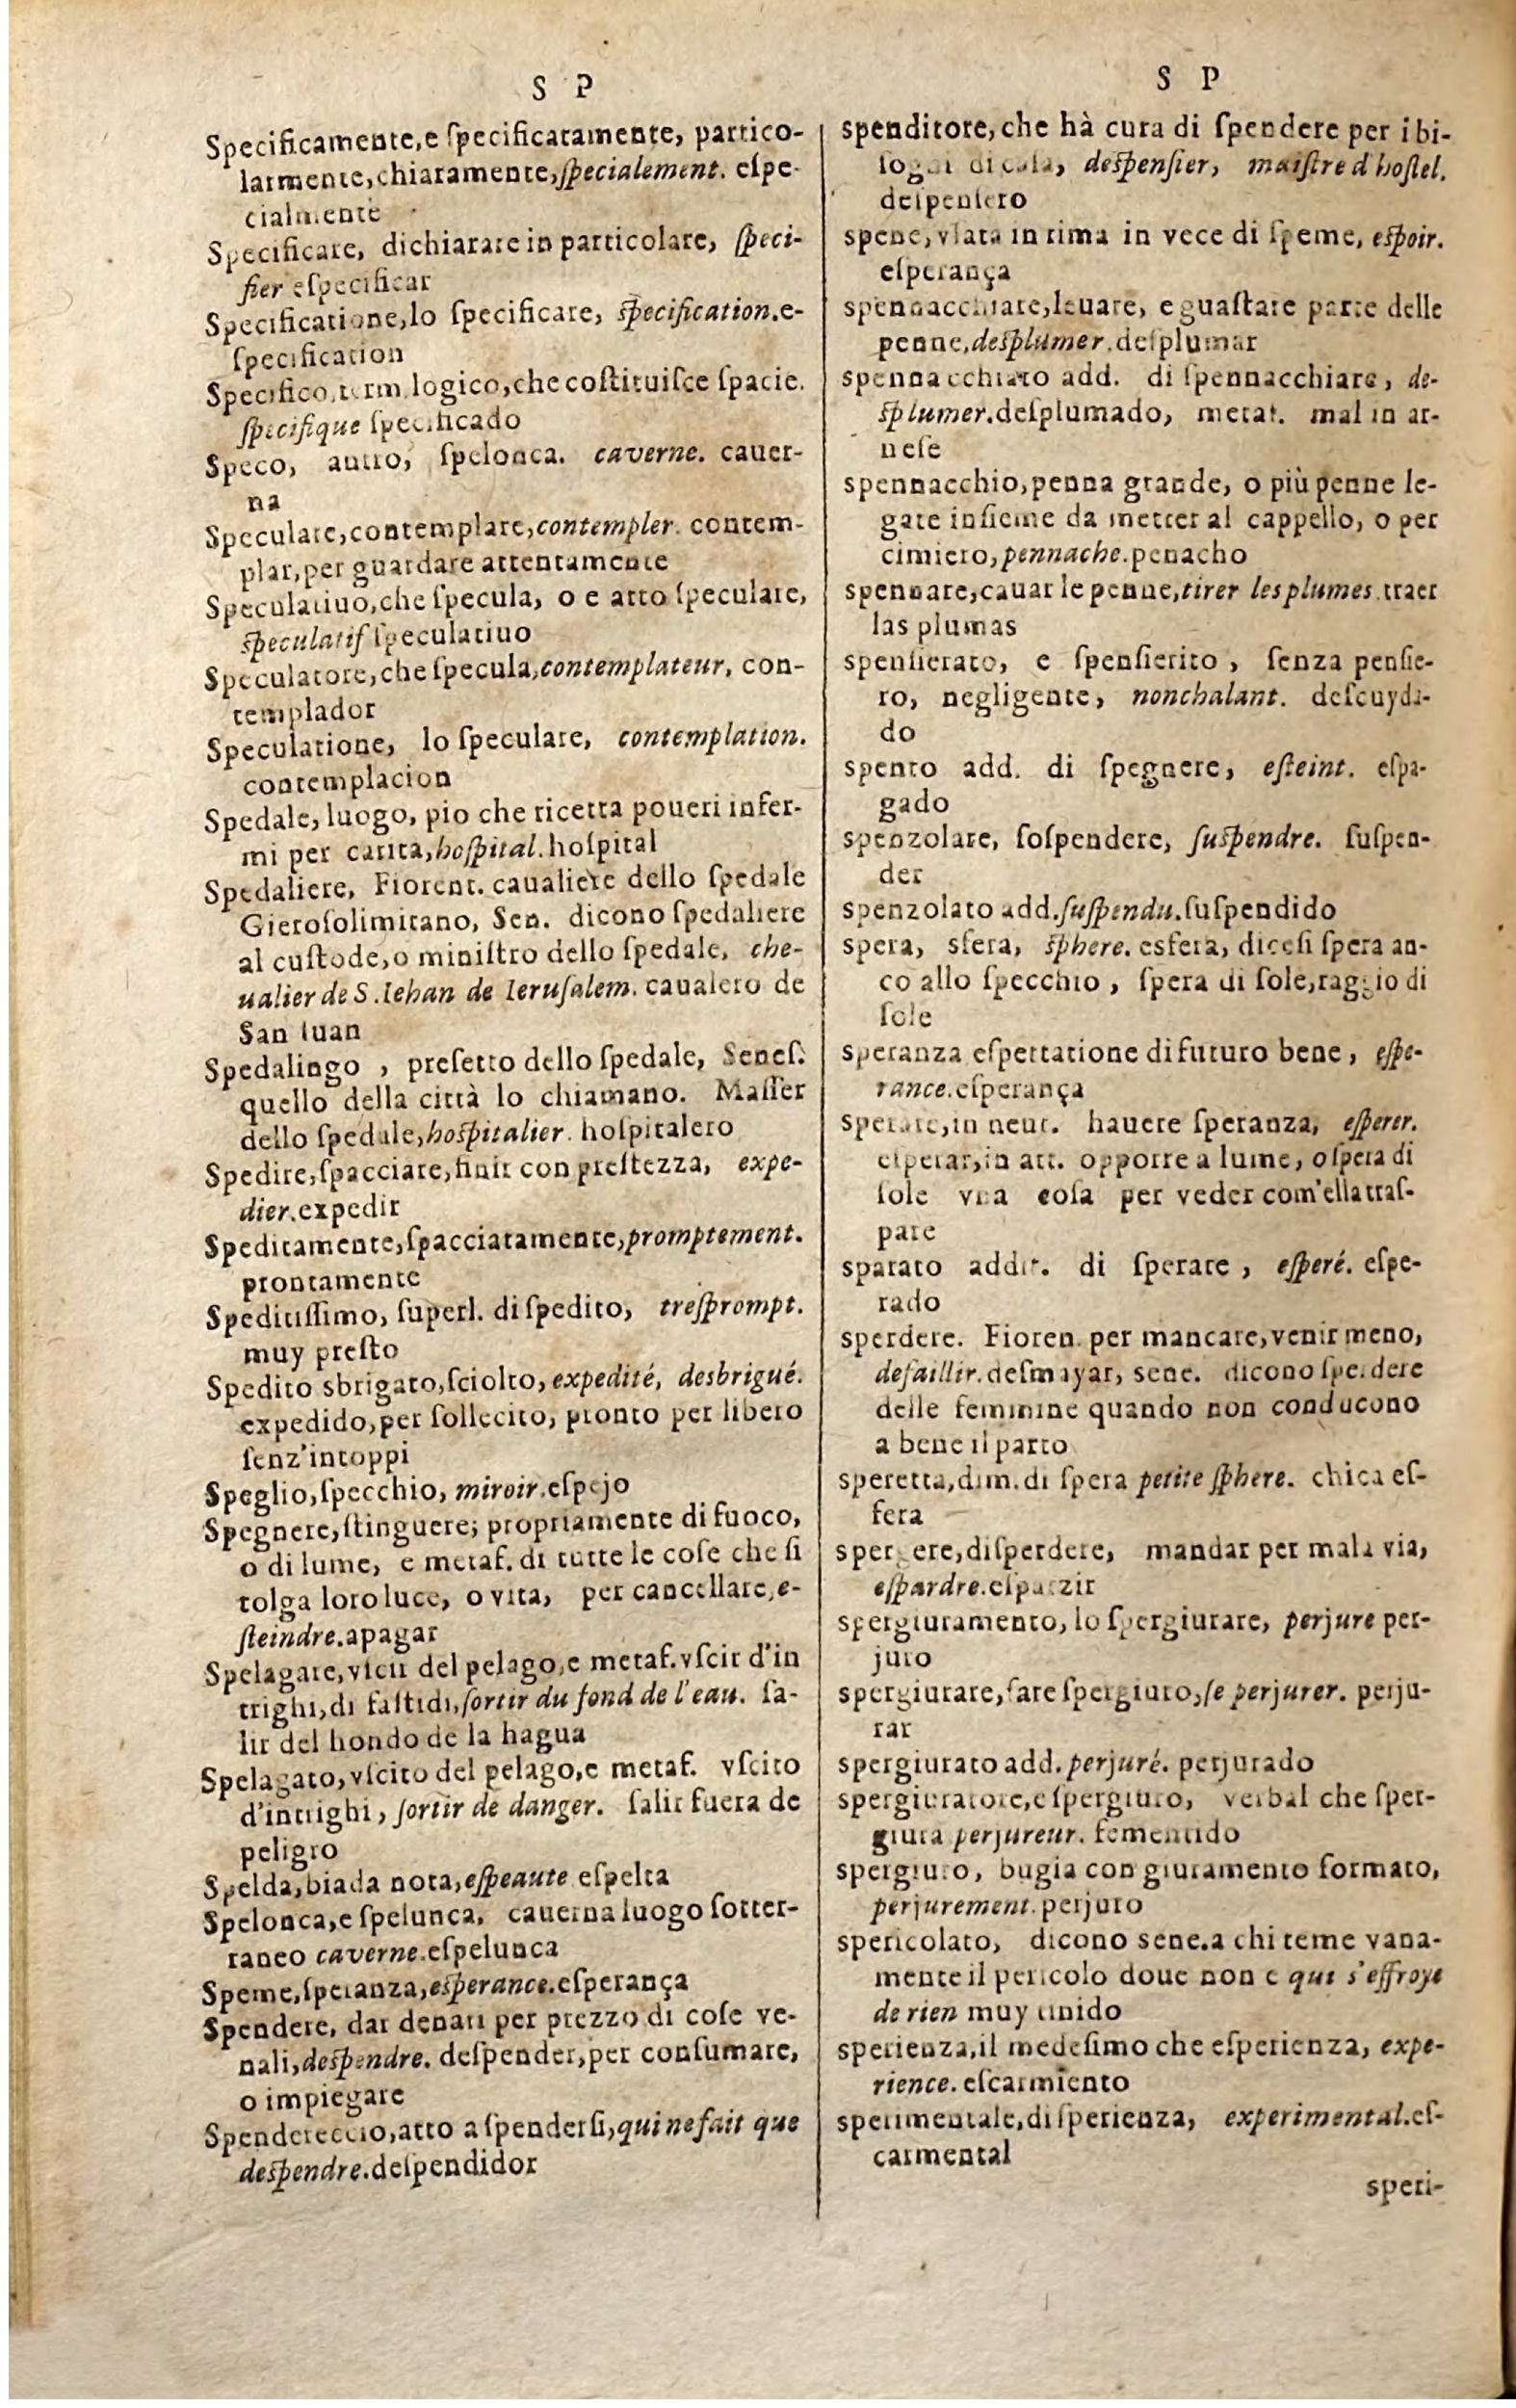 S P
Specificamente,e ſpecificatamente, partico-
larmente,chiaramente,ſpecialement. eſpe-
cialmente
Specificare, dichiarare in particolare, ſpeci-
fier eſpecificar
Specificatione,lo ſpecificare, ſpecification.e-
ſpecification
Specifico,term.logico,che coſtituiſce ſpacie.
ſpecifique ſpecificado
Speco, antro, ſpelonca. caverne. cauer-
na
Speculare,contemplare,contempler. contem-
plar,per guardare attentamente
Speculatiuo,che ſpecula, o e atto ſpeculare,
ſpeculatif ſpeculatiuo
Speculatore,che ſpecula,contemplateur, con-
templador
Speculatione, lo ſpeculare, contemplation.
contemplacion
Spedale, luogo, pio che ricetta poueri infer-
mi per carita,hoſpital.hoſpital
Spedaliere, Fiorent. caualiere dello ſpedale
Gieroſolimitano, Sen. dicono ſpedaliere
al cuſtode,o miniſtro dello ſpedale, che-
ualier de S.Iehan de Ieruſalem. caualero de
San Iuan
Spedalingo , prefetto dello ſpedale, Seneſ.
quello della città lo chiamano. Maſſer
dello ſpedale,hoſpitalier. hoſpitalero
Spedire,ſpacciare,finir con preſtezza, expe-
dier.expedir
Speditamente,ſpacciatamente,promptement.
prontamente
Speditiſſimo, ſuperl. di ſpedito, treſprompt.
muy preſto
Spedito sbrigato,ſciolto, expedité, desbrigué.
expedido,per ſollecito, pronto per libero
ſenz'intoppi
Speglio,ſpecchio, miroir.eſpejo
Spegnere,ſtinguere; propriamente di fuoco,
o di lume, e metaf. di tutte le coſe che ſi
tolga loro luce, o vita, per cancellare,e-
ſteindre.apagar
Spelagare,vſcir del pelago,e metaf.vſcir d'in
trighi,di faſtidi,ſortir du fond de l'eau. ſa-
lir del hondo de la hagua
Spelagato,vſcito del pelago,e metaf. vſcito
d'intrighi, ſortir de danger. ſalir fuera de
peligro
Spelda,biada nota,eſpeaute eſpelta
Spelonca,e ſpelunca, cauerna luogo ſotter-
raneo caverne.eſpelunca
Speme,ſperanza,eſperance.eſperança
Spendere, dar denari per prezzo di coſe ve-
nali,deſpendre. deſpender,per conſumare,
o impiegare
Spendereccio,atto a ſpenderſi,qui ne fait que
deſpendre.deſpendidor
S P
spenditore,che hà cura di ſpendere per i bi-
ſogni di caſa, deſpenſier, maiſtre d hoſtel.
deſpenſero
spene,vſata in rima in vece di ſpeme, eſpoir.
eſperança
spennacchiare,leuare, e guaſtare parte delle
penne,deſplumer.deſplumar
spennacchiato add. di ſpennacchiare, de-
ſplumer.deſplumado, metaf. mal in ar-
neſe
spennacchio,penna grande, o più penne le-
gate inſieme da metter al cappello, o per
cimiero,pennache.penacho
spennare,cauar le penne,tirer les plumes.traer
las plumas
spenſierato, e ſpenſierito , ſenza penſie-
ro, negligente, nonchalant. deſcuyda-
do
spento add. di ſpegnere, eſteint. eſpa-
gado
spenzolare, ſoſpendere, ſuſpendre. ſuſpen-
der
spenzolato add.ſuſpendu.ſuſpendido
spera, sfera, ſphere. esfera, diceſi ſpera an-
co allo ſpecchio , ſpera di ſole,raggio di
ſole
speranza eſpettatione di futuro bene , eſpe-
rance.eſperança
sperare,in neut. hauere ſperanza, eſperer.
eſperar,in att. opporre a lume, o ſpera di
ſole vna coſa per veder com'ella traſ-
pare
sparato addit. di ſperare , eſperé. eſpe-
rado
sperdere. Fioren. per mancare,venir meno,
defaillir.deſmayar, sene. dicono ſperdere
delle feminine quando non conducono
a bene il parto
speretta,dim.di ſpera petite ſphere. chica eſ-
fera
spergere,diſperdere, mandar per mala via,
eſpardre.eſparzir
spergiuramento, lo ſpergiurare, perjure per-
juro
spergiurare,fare ſpergiuro,ſe perjurer. perju-
rar
spergiurato add.perjuré. perjurado
spergiuratore,e ſpergiuro, verbal che ſper-
giura perjureur. fementido
spergiuro, bugia con giuramento formato,
perjurement.perjuro
spericolato, dicono sene.a chi teme vana-
mente il pericolo doue non e qui s'effroye
de rien muy timido
sperienza,il medeſimo che eſperienza, expe-
rience. eſcarmiento
sperimentale,di ſperienza, experimental.eſ-
carmental
speri-